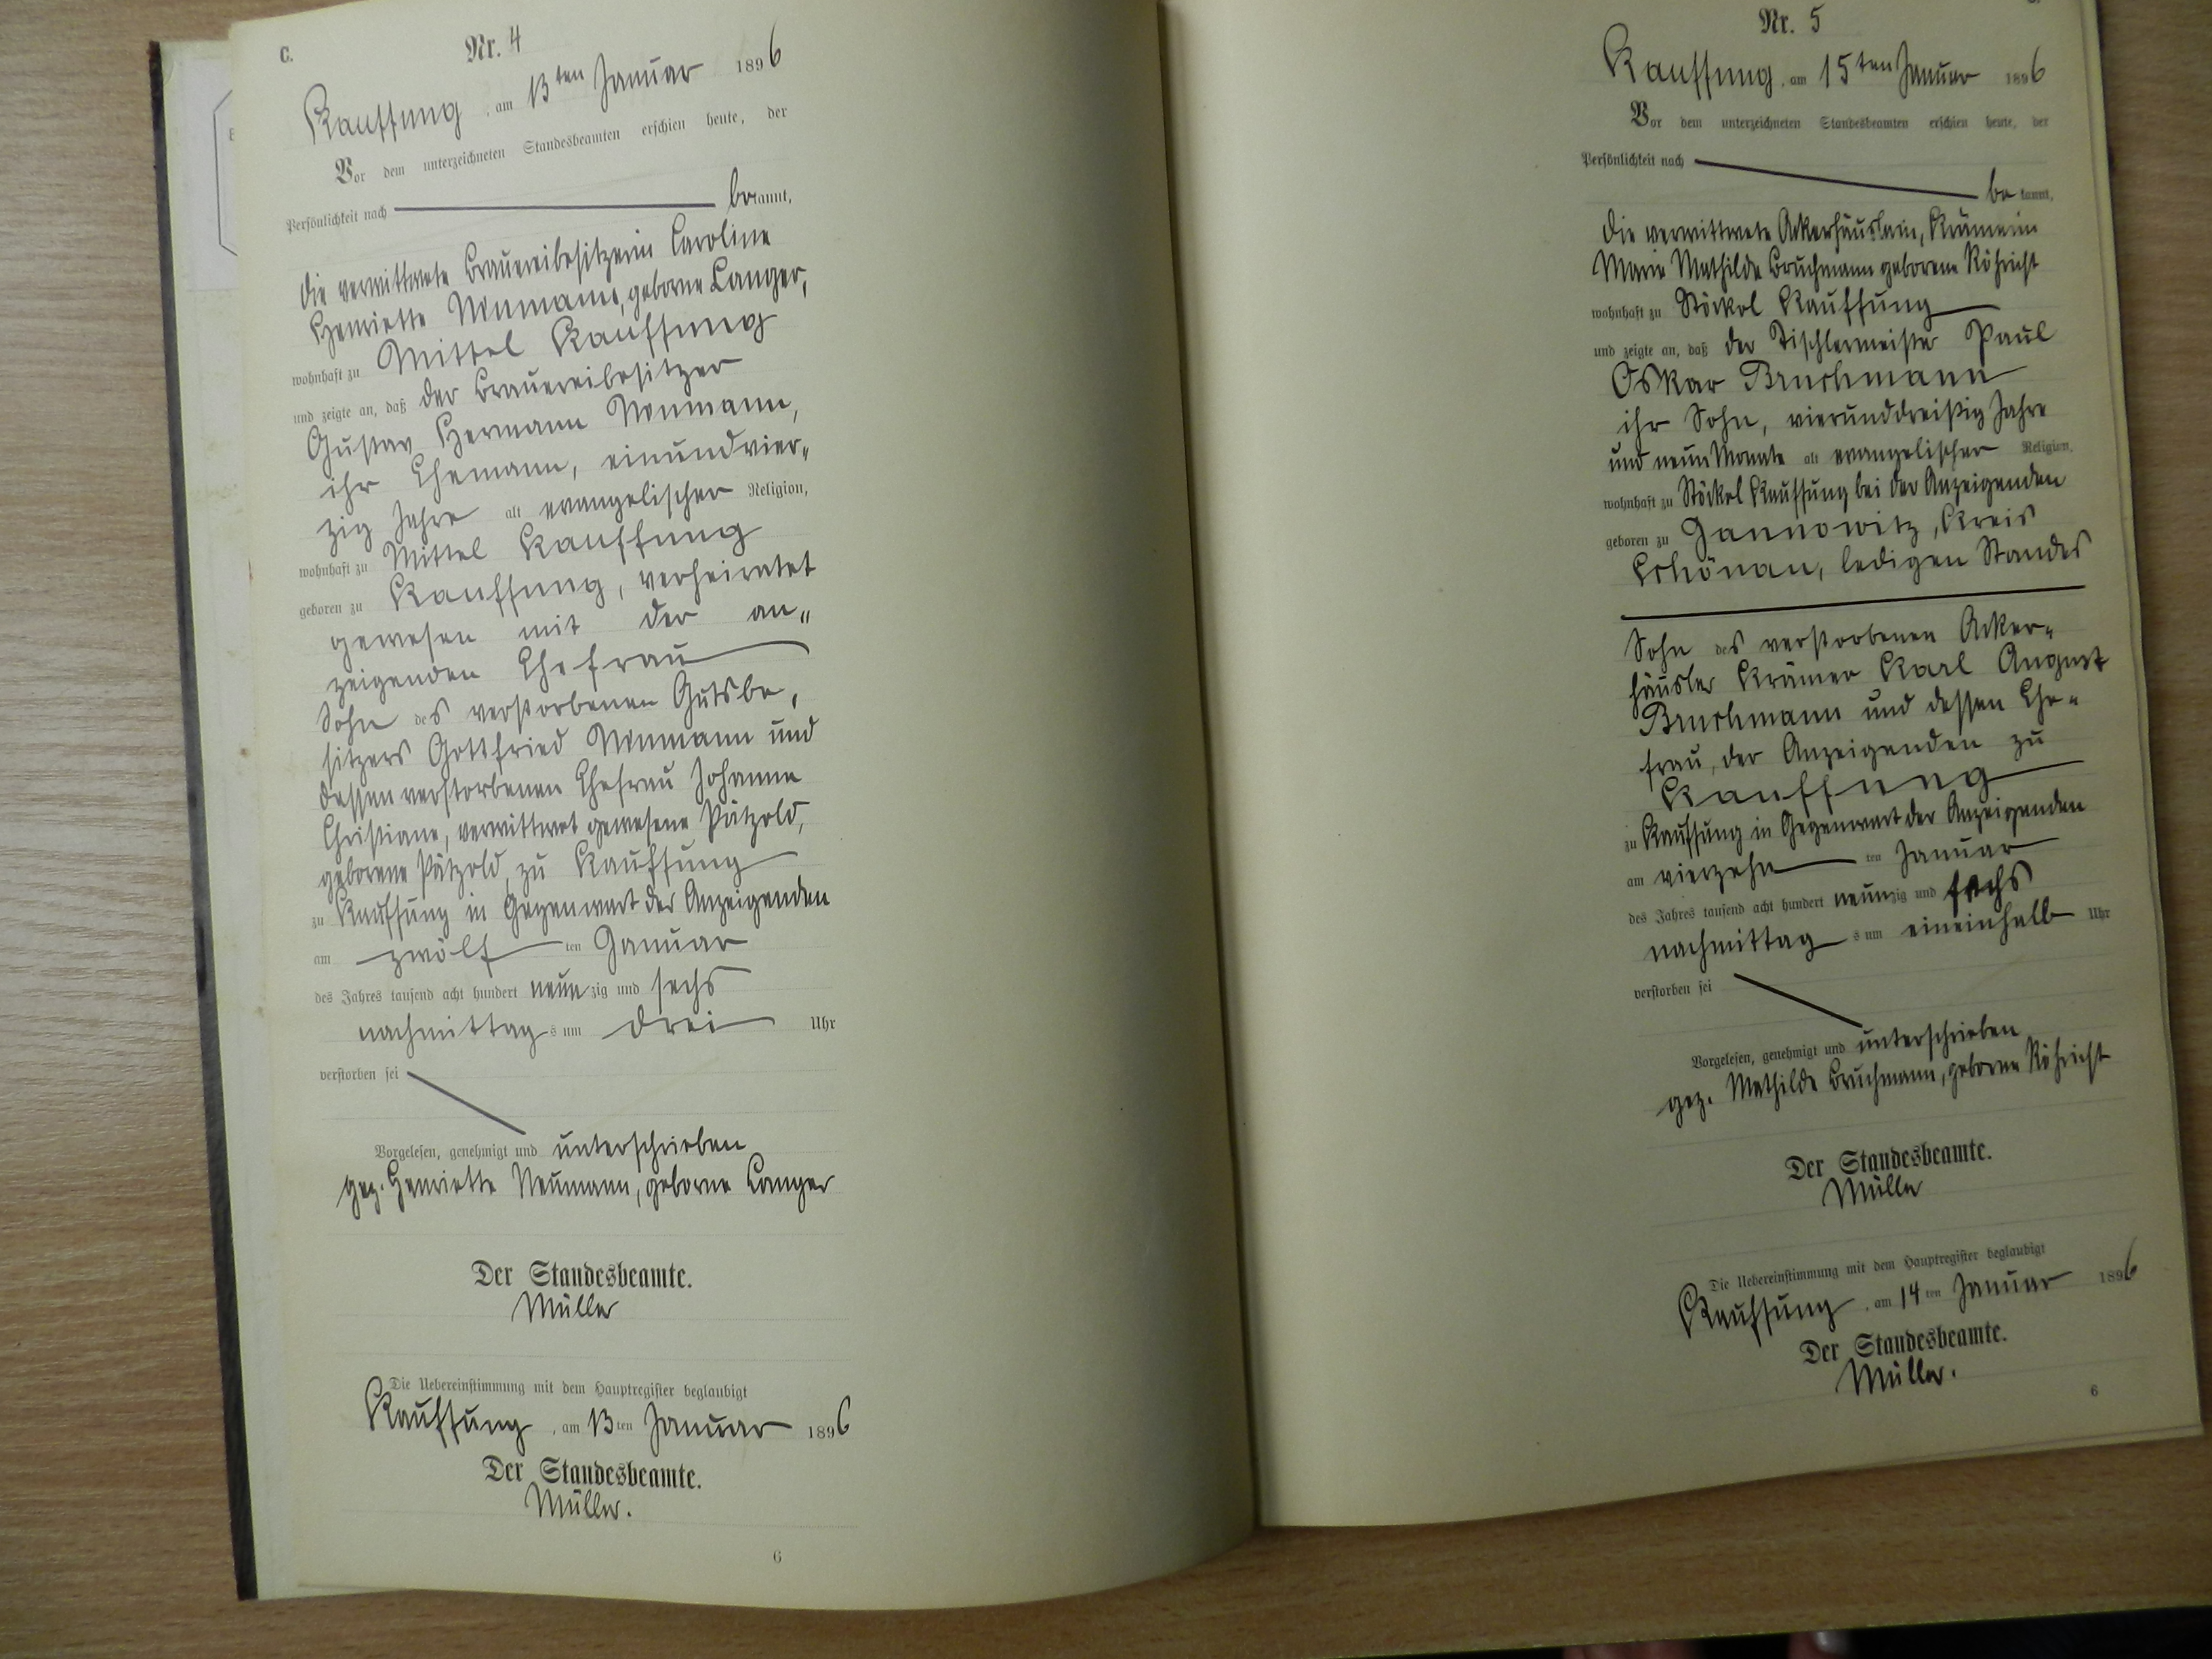 C.
Nr. 4
Kauffung, am 13ten Januar 1896
Vor dem unterzeichneten Standesbeamten erschien heute, der
Persönlichkeit nach
bekannt,
die verwittwete Brauereibesitzerin Caroline
Henriette Neumann, geborne Langer,
wohnhaft zu Mittel Kauffung
und zeigte an, daß der Brauereibesitzer
Gustav Hermann Neumann,
ihr Ehemann, einundvier„
zig Jahre alt evangelischer Religion,
wohnhaft zu Mittel Kauffung
geboren zu Kauffung, verheiratet
gewesen mit der an„
zeigenden Ehefrau
Sohn des verstorbenen Gutsbe„
sitzers Gottfried Neumann und
dessen verstorbenen Ehefrau Johanne
Christiane, verwittwet gewesene Pätzold,
geborene Pätzold, zu Kauffung
zu Kauffung in Gegenwart der Anzeigenden
am zwölften Januar
des Jahres tausend acht hundert neunzig und sechs
nachmittags um drei Uhr
verstorben sei
Vorgelesen, genehmigt und unterschrieben
gez. Henriette Neumann, geborne Langer
Der Standesbeamte.
Müller
Die Uebereinstimmung mit dem Hauptregister beglaubigt
Kauffung, am 13ten Januar 1896
Der Standesbeamte.
Müller.
6
Nr. 5
Kauffung, am 15ten Januar 1896
Vor dem unterzeichneten Standesbeamten erschien heute, der
Persönlichkeit nach
bekannt,
die verwittwete Ackerhäuslerin, Krämerin
Marie Mathilde Bruchmann geborene Röhricht
wohnhaft zu Stöckel Kauffung
und zeigte an, daß der Tischlermeister Paul
Oskar Bruchmann
ihr Sohn, vierunddreißig Jahre
und neun Monate alt evangelischer Religion,
wohnhaft zu Stöckel Kauffung bei der Anzeigenden
geboren zu Jannowitz, Kreis
Schönau, ledigen Standes
Sohn des verstorbenen Acker„
häusler Krämer Karl August
Bruchmann und dessen Ehe„
frau, der Anzeigenden zu
Kauffung
zu Kauffung in Gegenwart der Anzeigenden
am vierzehnten Januar
des Jahres tausend acht hundert neunzig und sechs
nachmittags um eineinhalb Uhr
verstorben sei
Vorgelesen, genehmigt und unterschrieben
gez. Mathilde Bruchmann, geborne Röhricht
Der Standesbeamte.
Müller
Die Uebereinstimmung mit dem Hauptregister beglaubigt
Kauffung, am 14ten Januar 1896
Der Standesbeamte.
Müller.
6